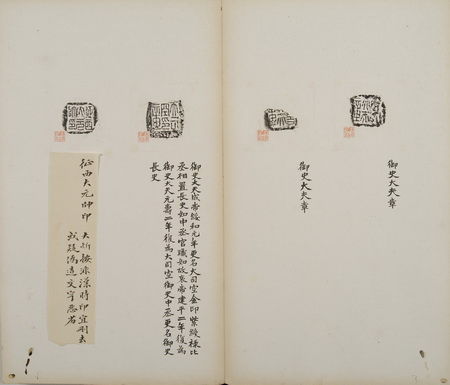 御史大夫章
御史大夫章
御史大夫成帝綏和元年更名大司空金印紫綬祿比
丞相置長史如中丞官職如故哀帝建平二年復為
御史大夫元壽二年復為大司空御史中丞更名御史
長史
征西大元帥印
按非漢時印宜刪去
或疑偽造文字惡